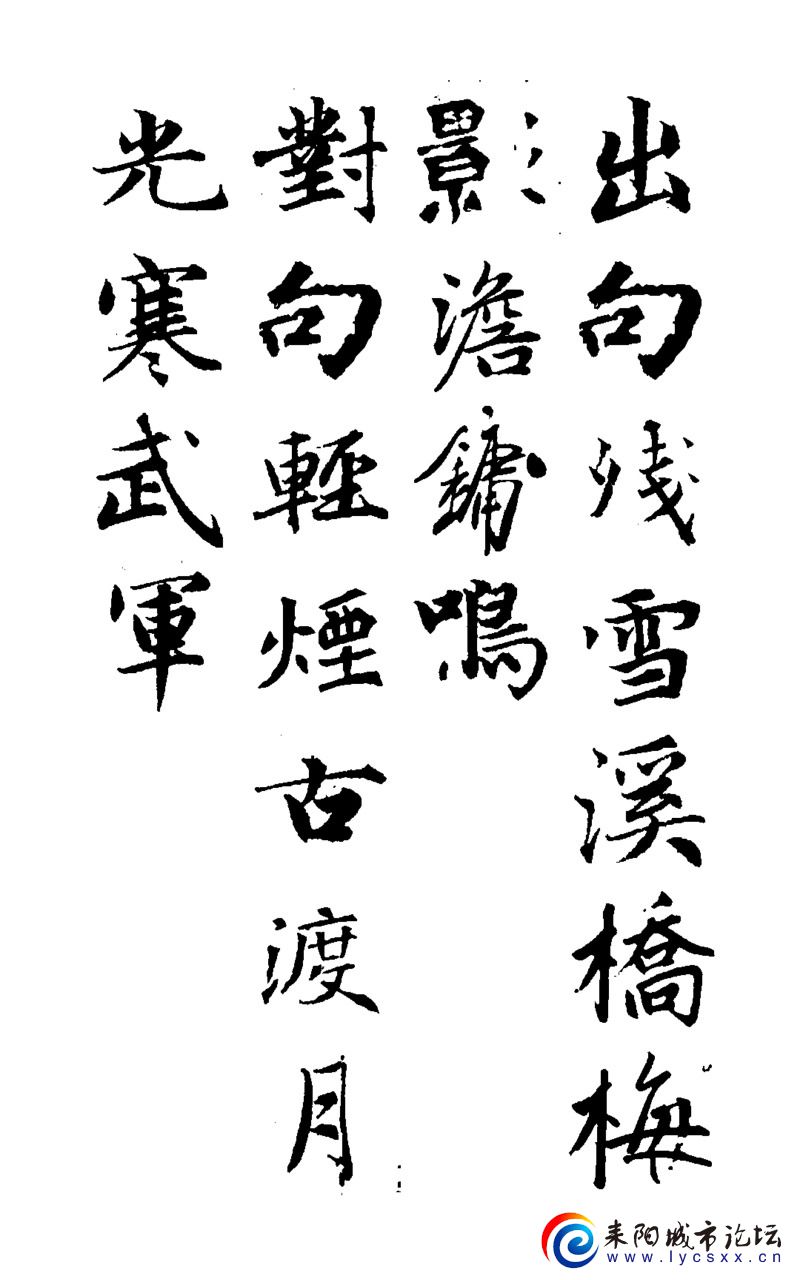 出句残雪溪橋梅
影澹鏞鳴
對句輕煙古渡月
光寒武軍
耒阳城市论坛
www.lycsxx.cn